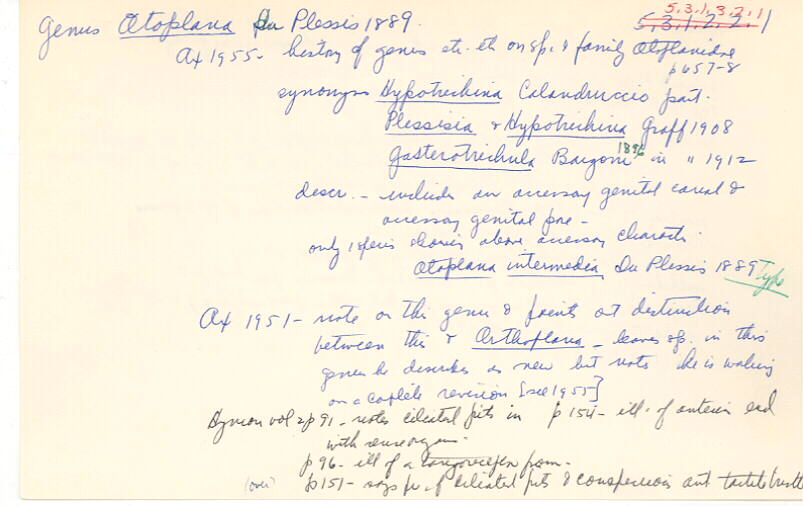 5.3.1.3.2.1
Genus Otoplana Du Plessis 1889. 5.3.1.2.2.1
Ax 1955 - history of genus etc. etc on sp. & family Otoplanidae
p 657-8
synonyms Hypotrichina Calandruccio part.
Plessisia & Hypotrichina Graff 1908
Gasterotrichula Bargoni 1896 in " 1912
descr. - includes an accessory genital canal &
accessory genital pore -
only 1 species shows above accessory character.
Otoplana intermedia Du Plessis 1889 Type
Ax 1951 - note on this genus & points out distinction
between this & Orthoplana - leaves sp. in this
genus he describes as new but notes he is working
on a complete revision [see 1955]
Hyman vol 2 p 91 - notes ciliated pits in p 154 - ill. of anterior end
with sense organs -
p 96 - ill of a from -
(over) p 151 - says pr. of ciliated pits & conspicuous ant tactile bristles